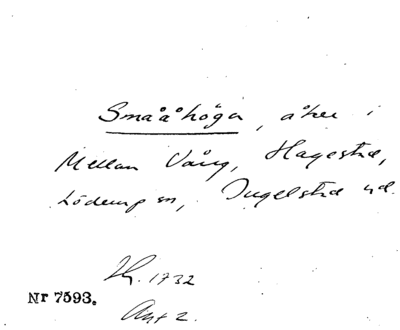 Smaååhögen, åker i
Mellan Vång, Hagestad,
Löderup sn, Ingelstad hd.
Nr 7593.
1732
Akt 2.